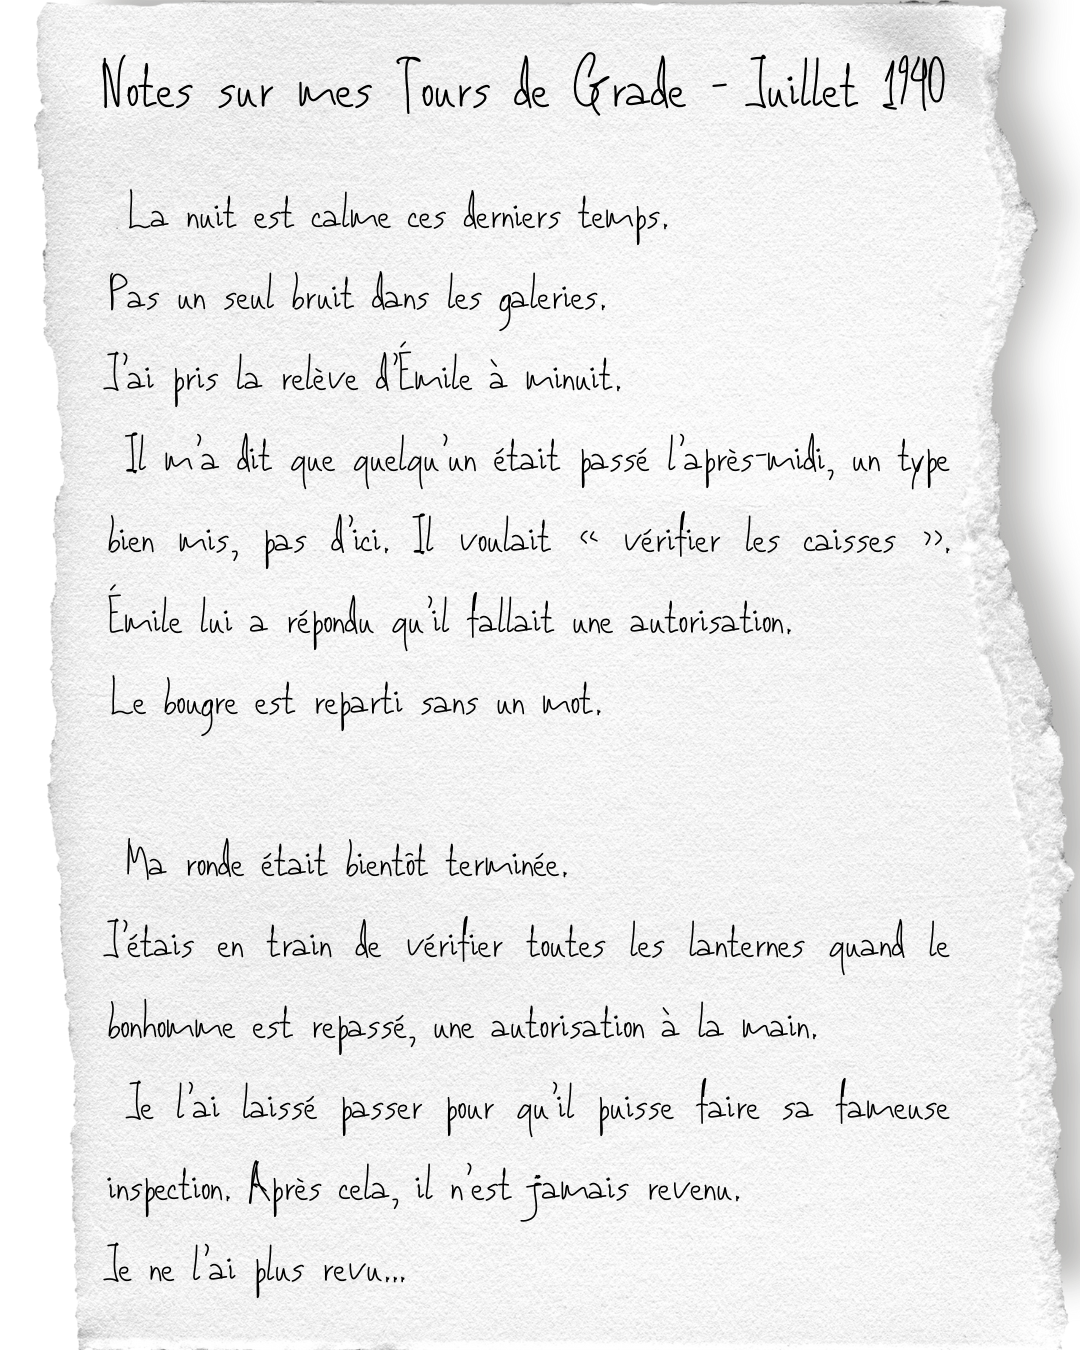 Notes sur mes Tours de Grade - Juillet 1940
La nuit est calme ces derniers temps.
Pas un seul bruit dans les galeries.
J'ai pris la relève d'Émile à minuit.
Il m'a dit que quelqu'un était passé l'après-midi, un type
bien mis, pas d'ici. Il voulait « vérifier les caisses ».
Émile lui a répondu qu'il fallait une autorisation.
Le bougre est reparti sans un mot.
Ma ronde était bientôt terminée.
J'étais en train de vérifier toutes les lanternes quand le
bonhomme est repassé, une autorisation à la main.
Je l'ai laissé passer pour qu'il puisse faire sa fameuse
inspection. Après cela, il n'est jamais revenu.
Je ne l'ai plus revu...